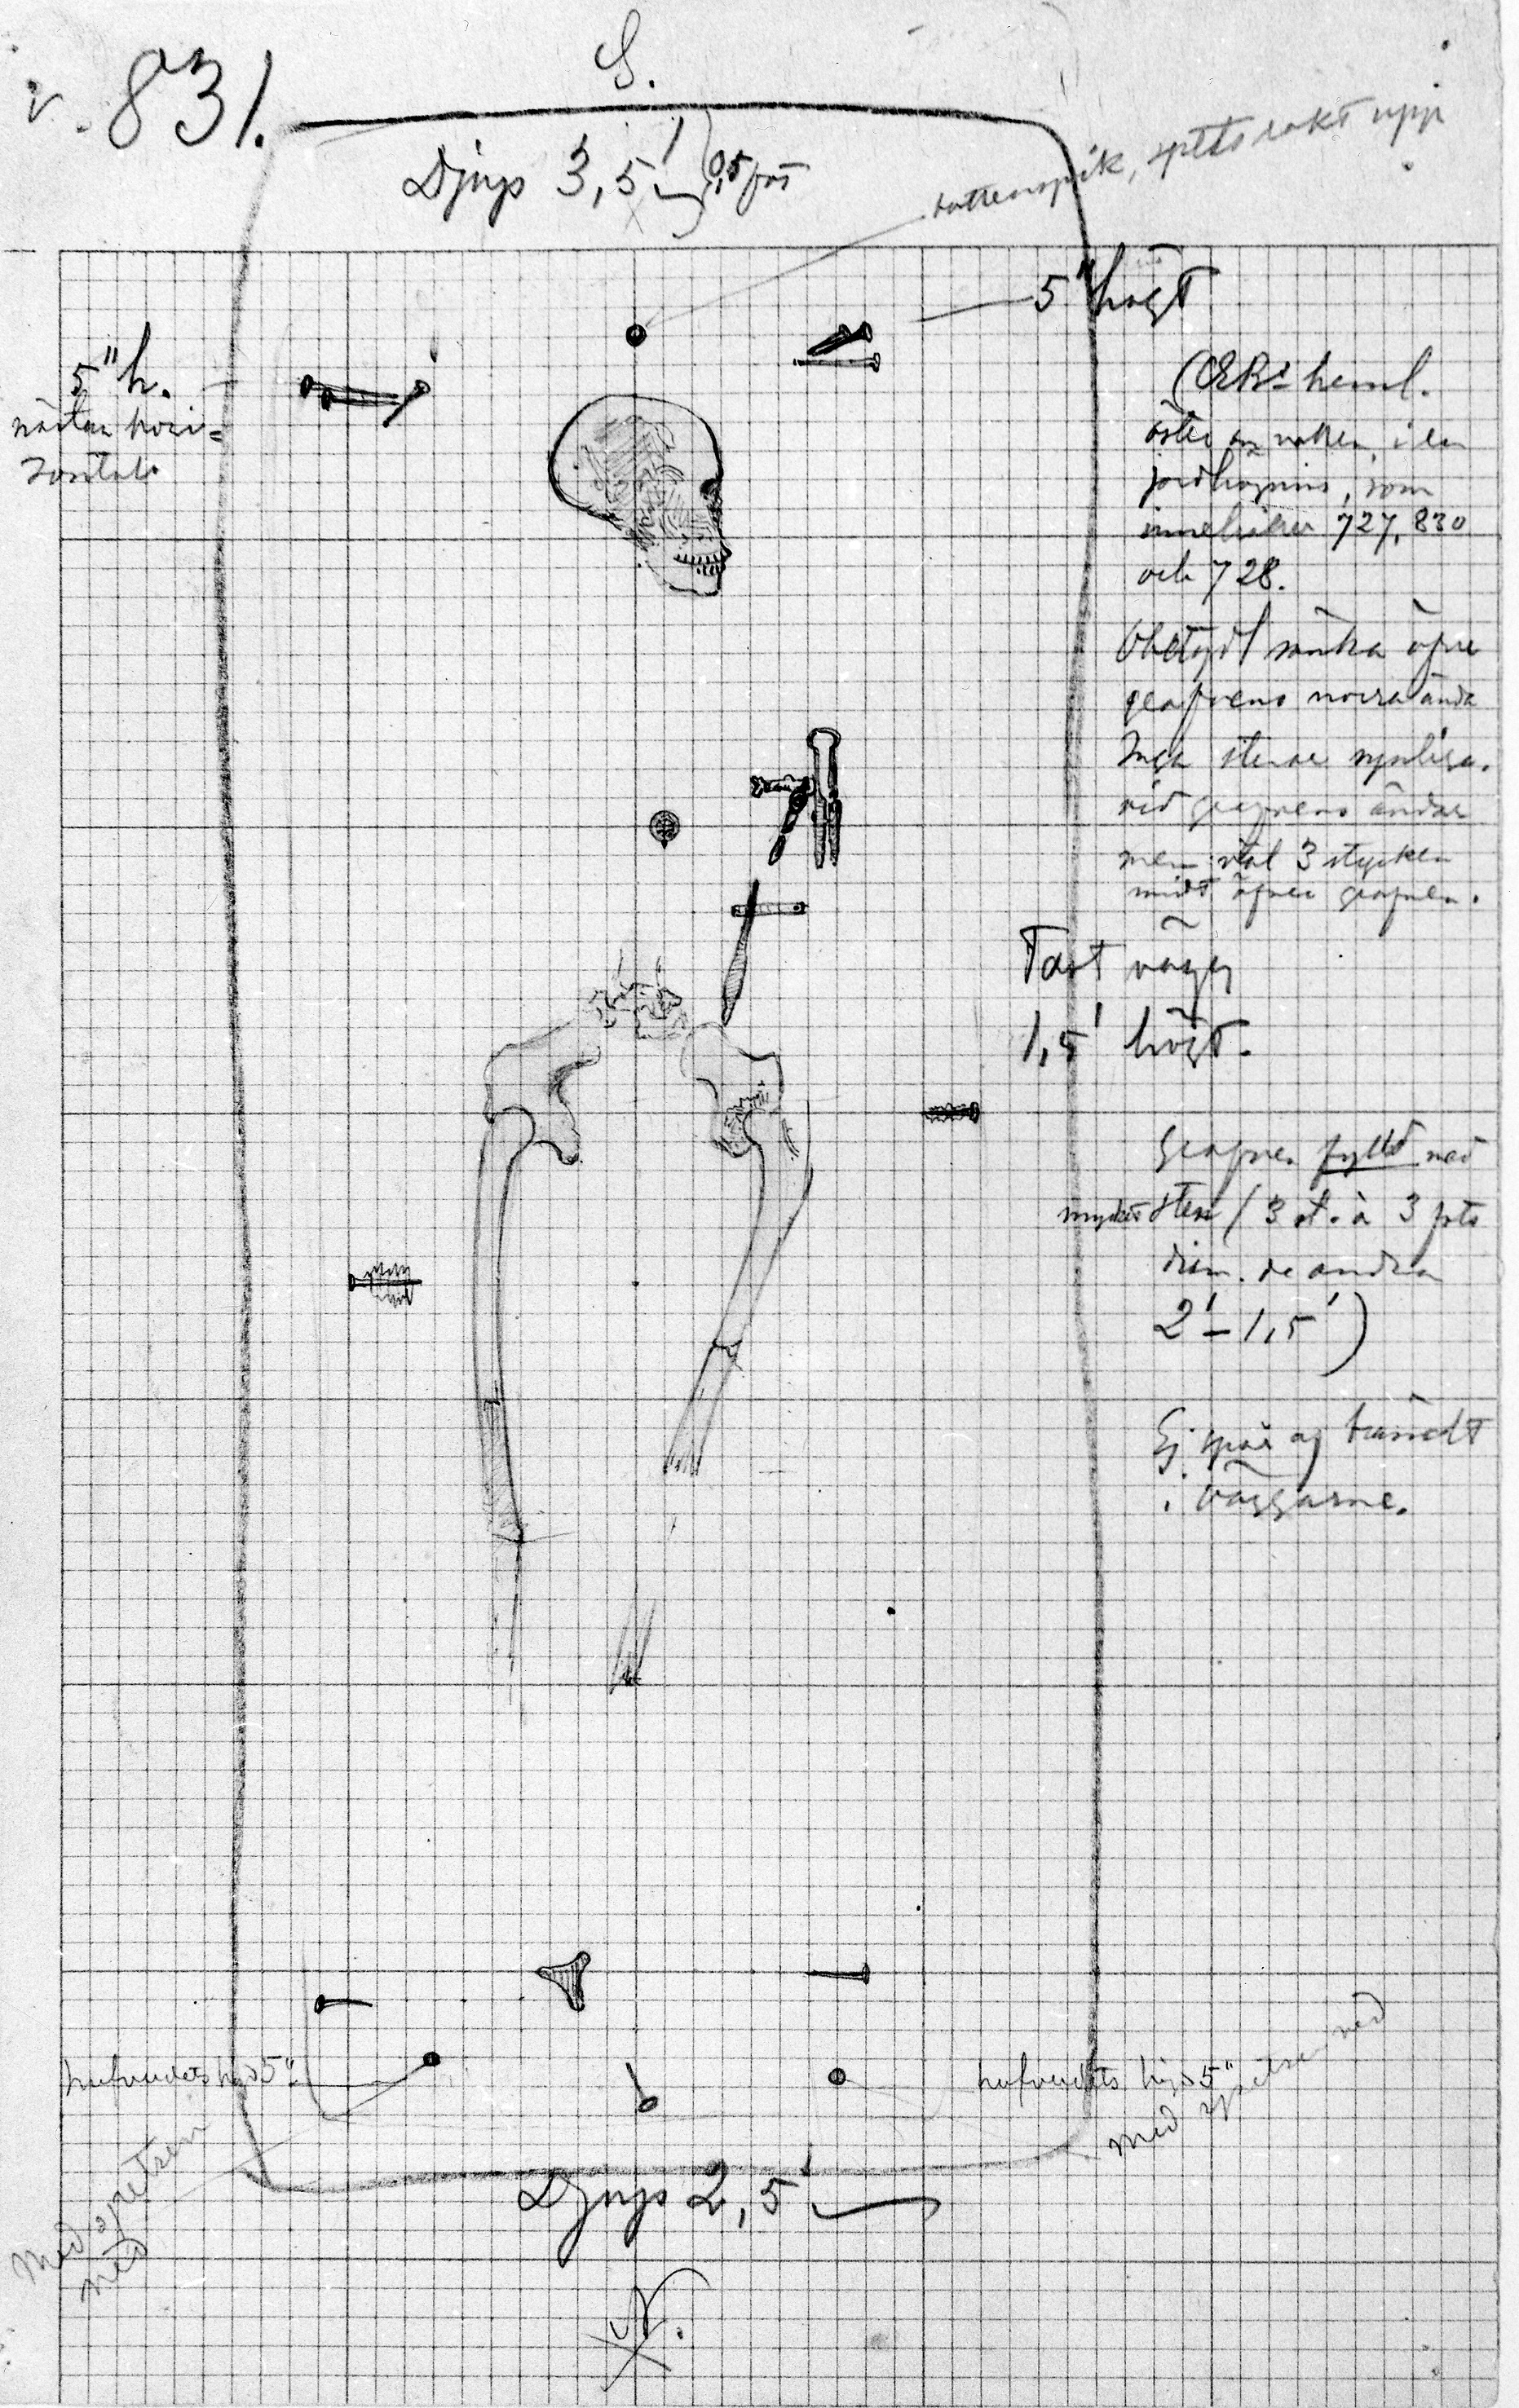 S.
v. 831.
Djup 3,5' 0,5 fot
bottenspik, spets rakt upp
5" högt
5" h.
nästan hori=
zontalt
öster om vallen, i en
som
innehåller 727, 830
och 728.
Obetydl sänka öfver
grafvens norra ända
Inga stenar synliga.
vid grafvens ändar
men väl 3 stycken
midt öfver grafven.
1,5' högt.
Grafven fylld med
mycket sten (3 st. à 3 fots
diam. de andra
2' – 1,5')
Ej spår af
i väggarne.
hufvudets höjd 5"
med spetsen
ned
hufvudets höjd 5"
med spetsen ned
Djup 2,5'
N.